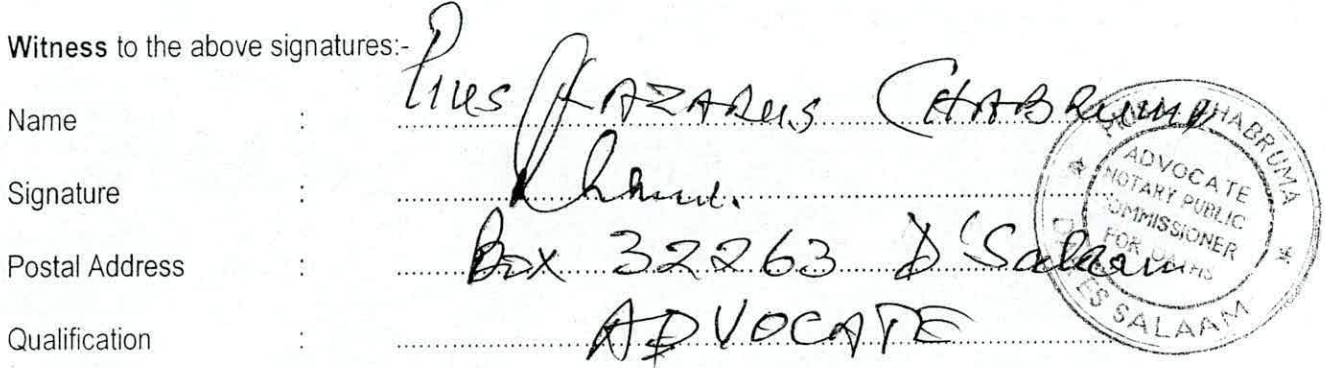 Witness to the above signatures:-
Name : Pius LAZARUS CHABRUMA
Signature :
Postal Address : Box 32263 D'Salaam
Qualification : ADVOCATE
CHABRUMA
ADVOCATE
NOTARY PUBLIC
COMMISSIONER
FOR OATHS
DAR ES SALAAM